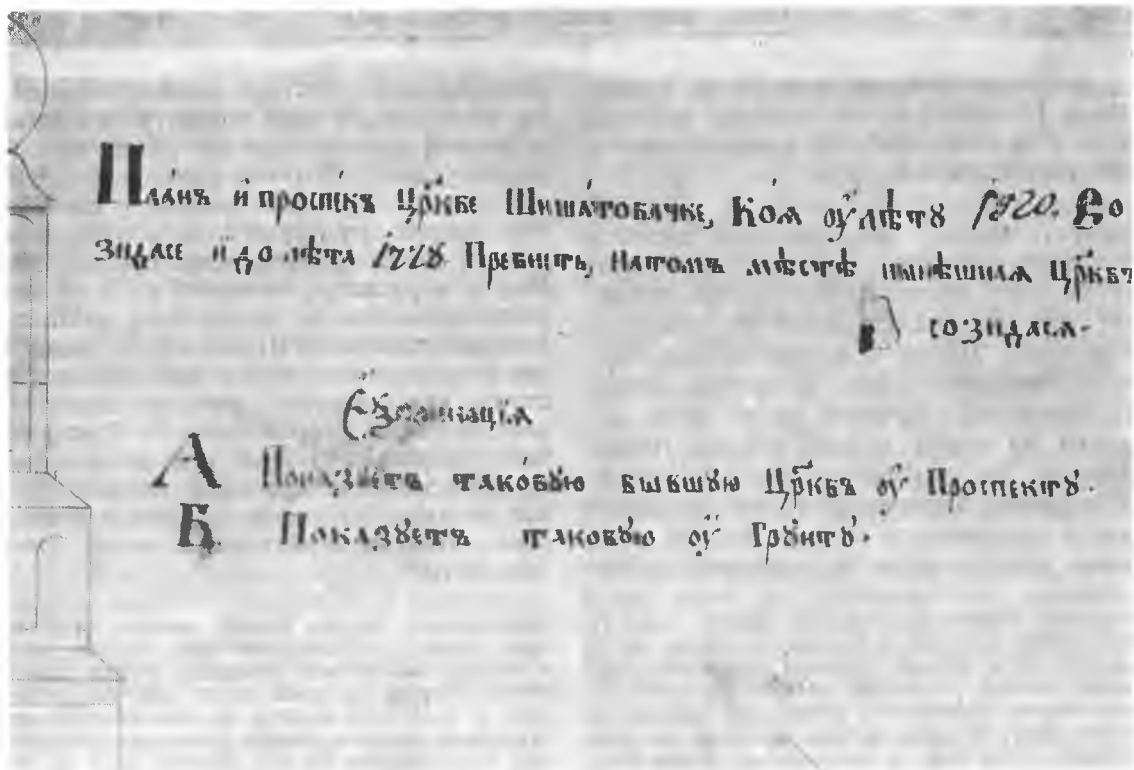 Пла́нъ и҆ проспе́къ Цр҃кве Шиша́товачке, Коѧ оу҆ лѣтꙋ 1520. Со
зидасе и до лѣта 1778 Пребысть, на томъ мѣстѣ нынѣшнѧѧ Цр҃квъ
созидасѧ.
Еѯпликацїѧ
А Показꙋетъ тако́вꙋю бывшꙋю Цр҃квъ оу҆ Проспектꙋ.
Б Показꙋетъ таковꙋю оу҆ Грꙋнтꙋ.